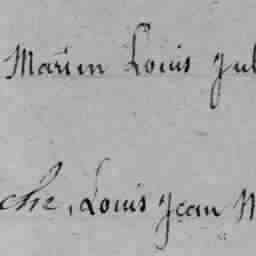 Marin Louis Jul
che, Louis Jean M